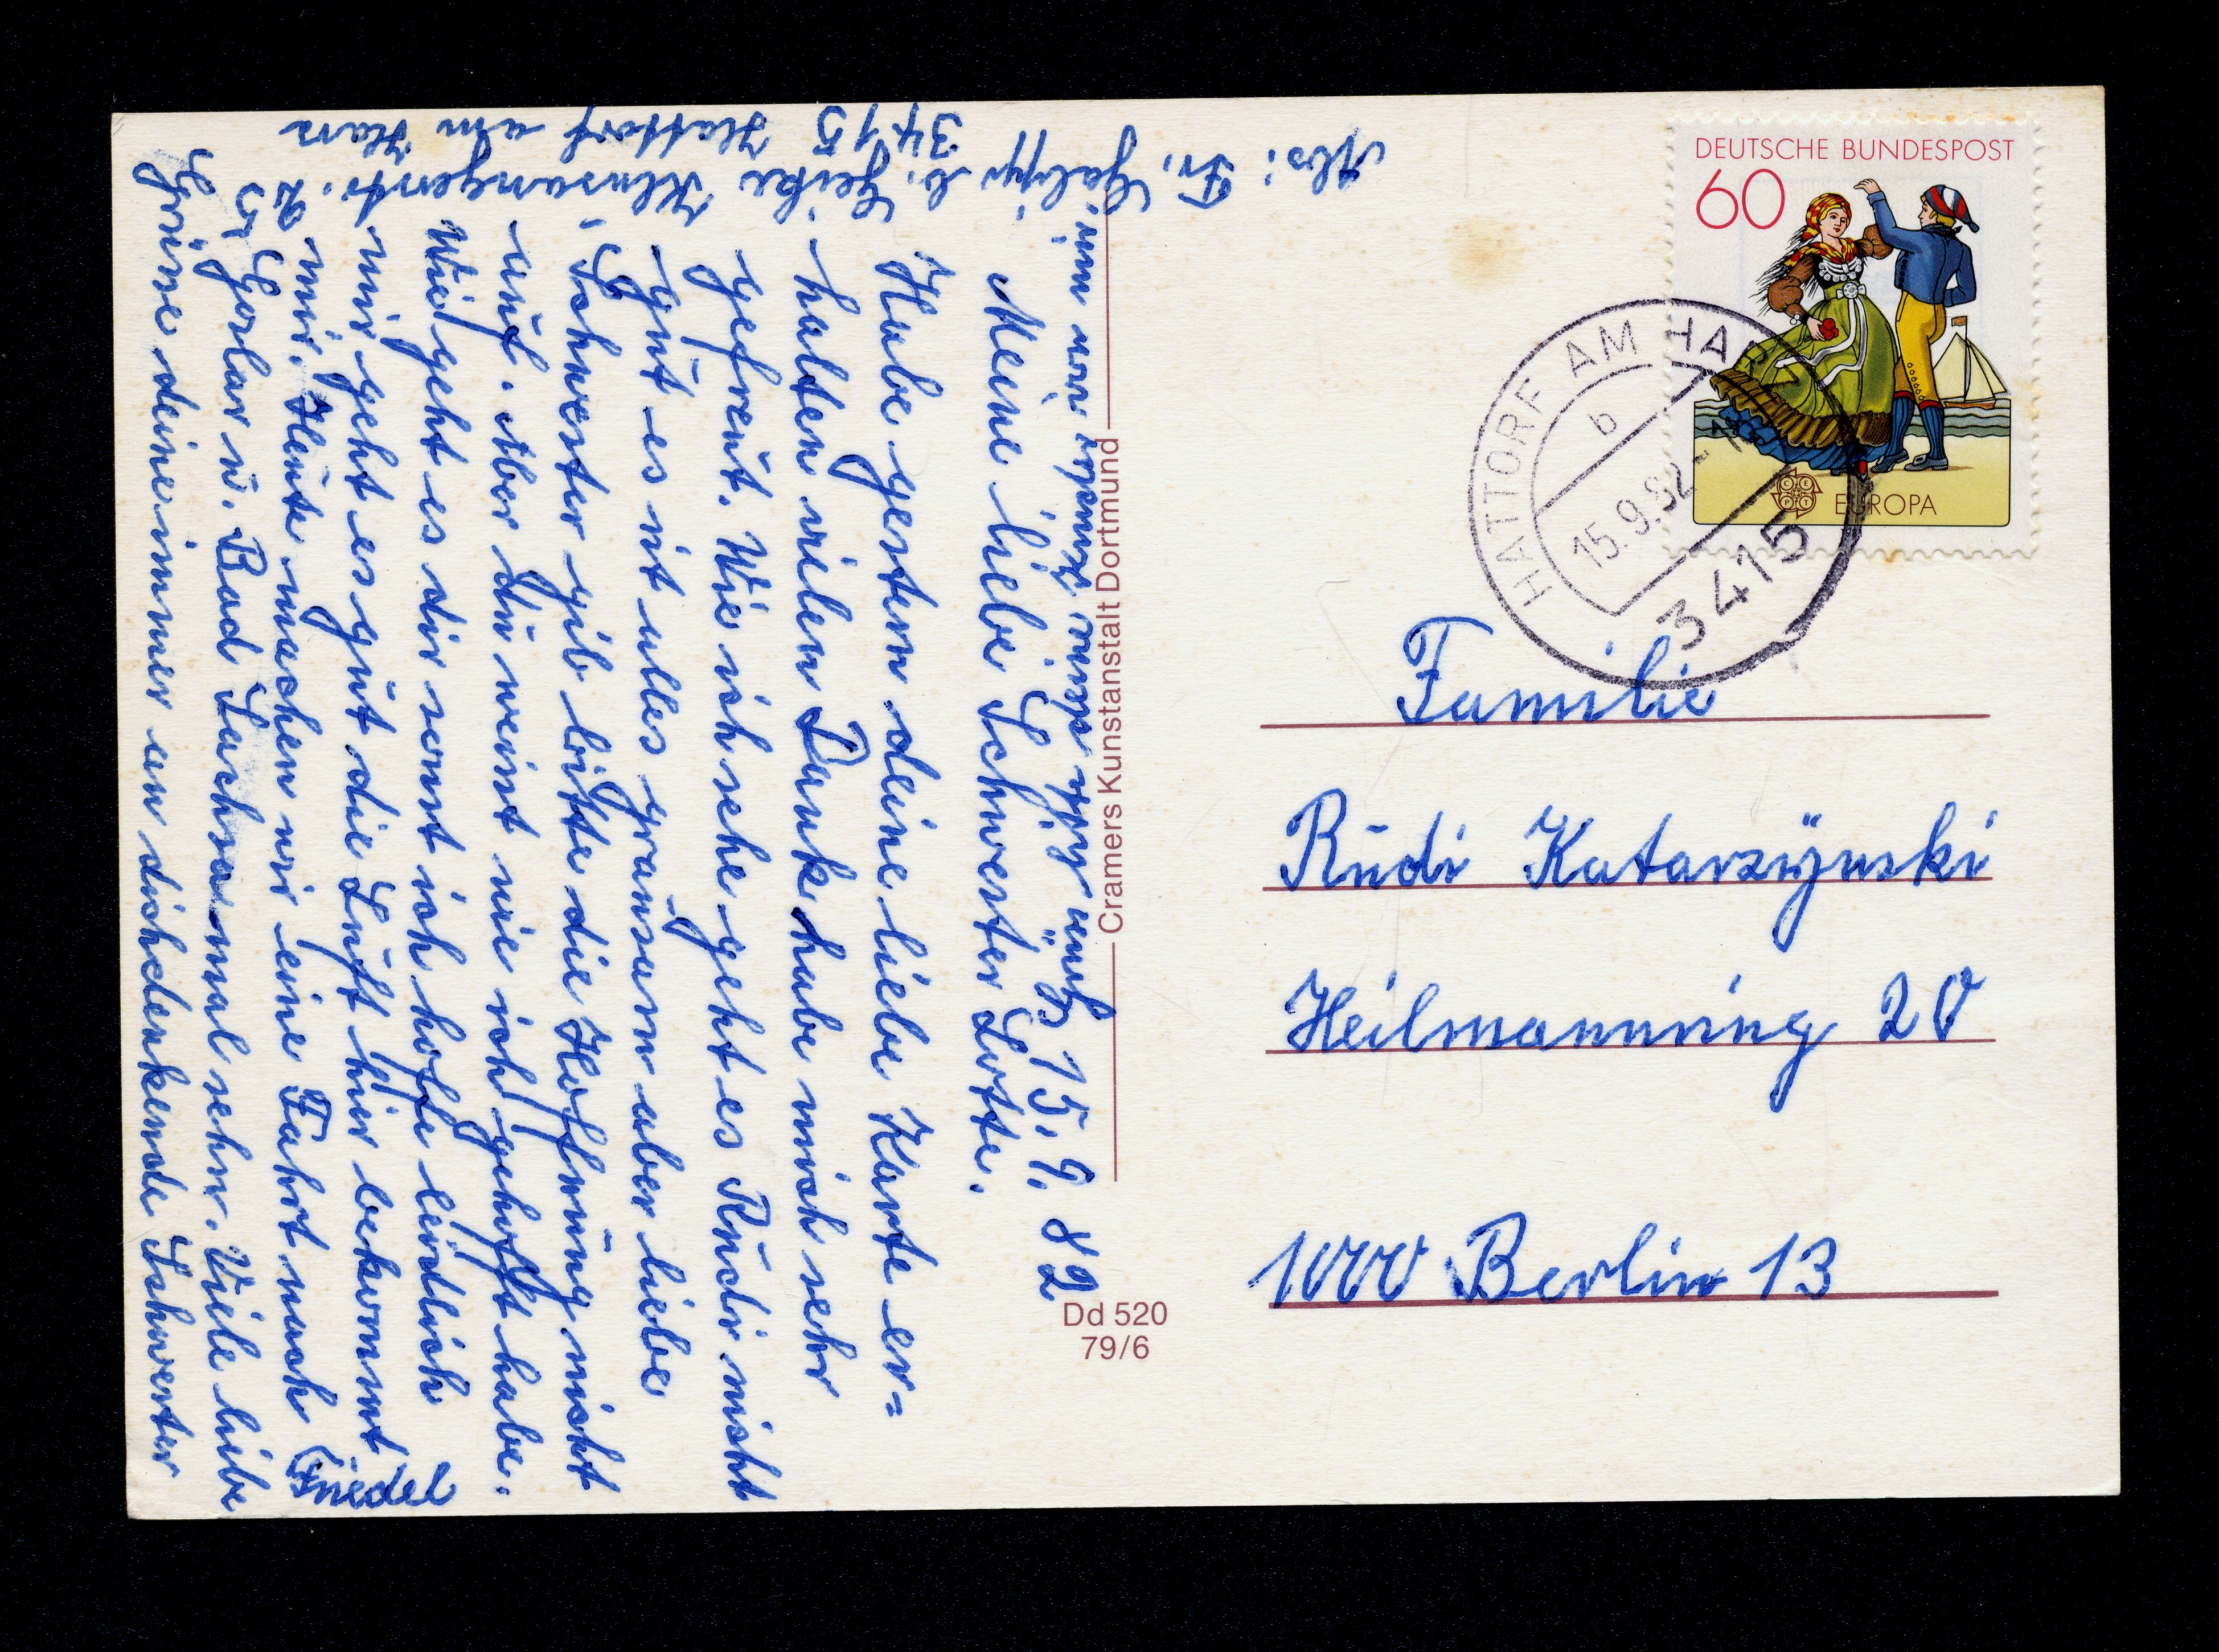 DEUTSCHE BUNDESPOST
60
EUROPA
HATTORF AM HARZ
b
15.9.82
3415
Abs: Fr. Galipp b. Geike Klusangerstr. 2
3415 Hattorf am Harz
15. 9. 82
Meine liebe Schwester Lotte.
Habe gestern deine liebe Karte er=
halten vielen Dank habe mich sehr
gefreut. Wie ich sehe geht es Rudi nicht
gut es ist alles grausam aber liebe
Schwester gib bitte die Hoffnung nicht
auf. Aber du weist wie ich gehofft habe.
Wie geht es dir sonst ich hoffe leidlich
mir geht es gut die Luft hier bekommt
mir. Heute machen wir eine Fahrt nach
Goslar u. Bad Sachsa mal sehn. Viele liebe
Grüsse deine immer an dichdenkende Schwester
Friedel
Cramers Kunstanstalt Dortmund
Dd 520
79/6
Familie
Rudi Katarzynski
Heilmannring 20
1000 Berlin 13